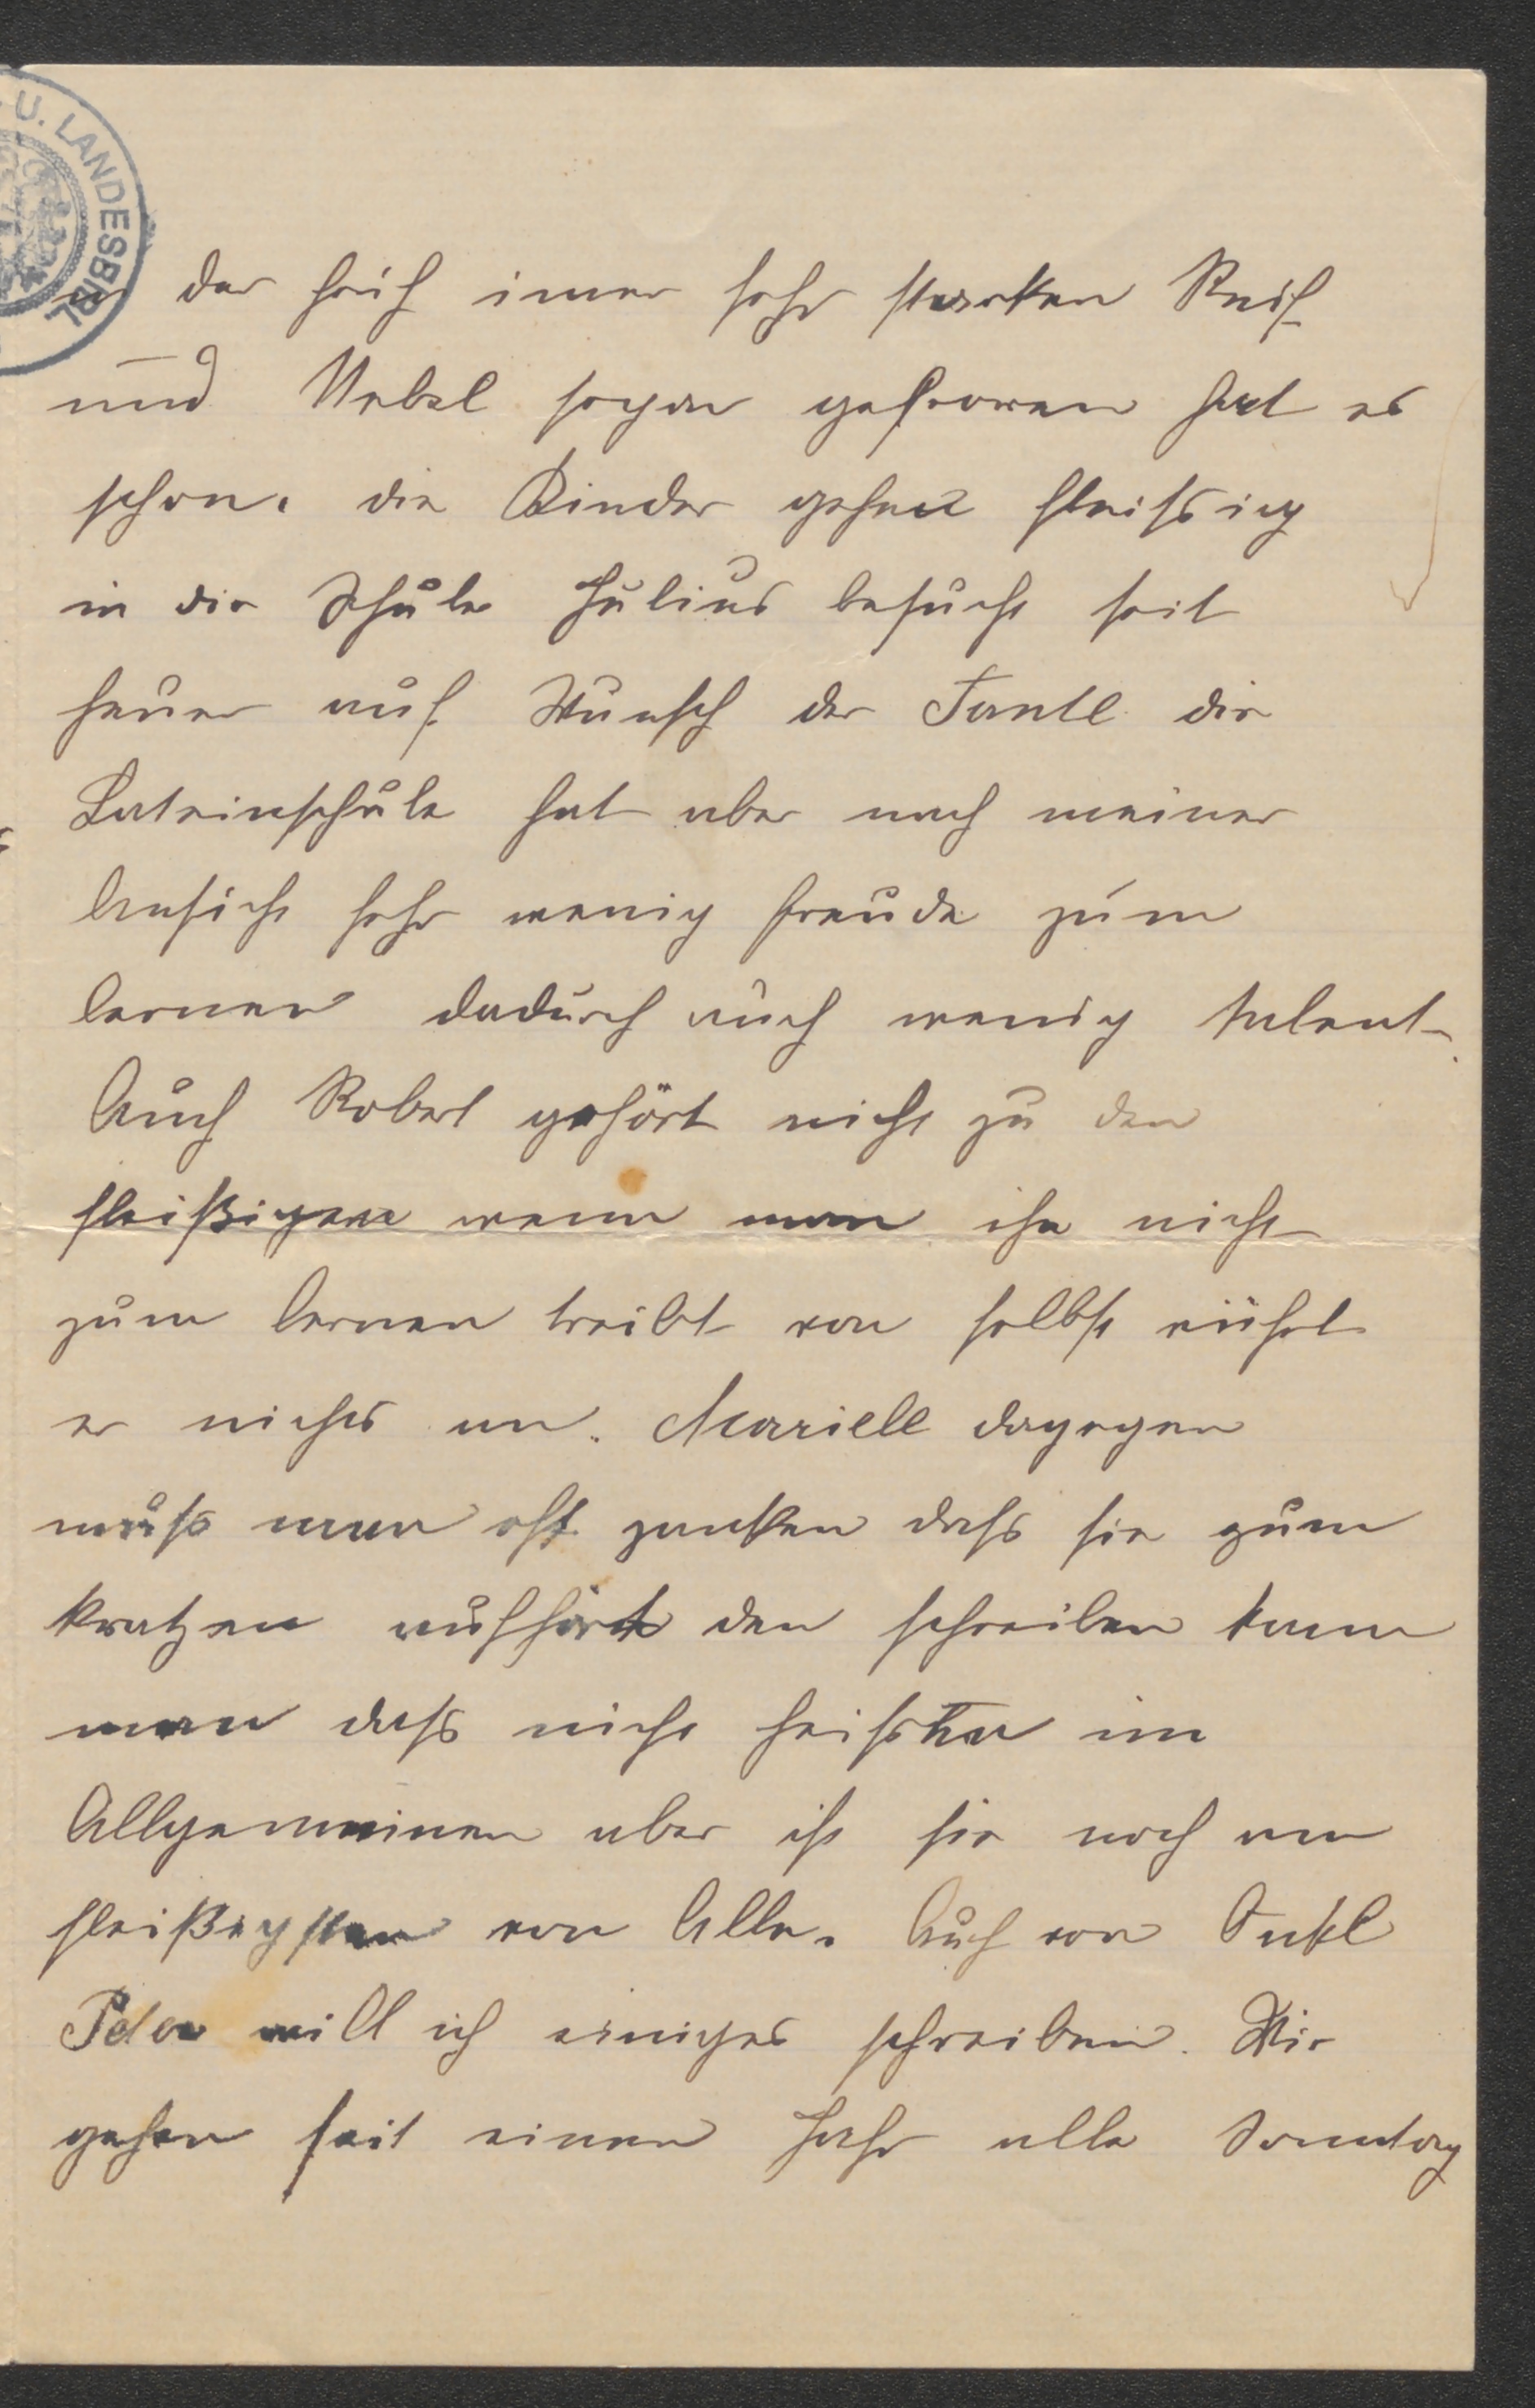 U. LANDESBIBL
in der früh imer sehr starken Reif
und Nebel sogar gefroren hat es
schon. die Kinder gehen fleissig
in die Schule Julius besucht seit
heuer auf Wunsch der Tantl die
Lateinschule hat aber nach meiner
Ansicht sehr wenig freude zum
lernen dadurch auch wenig talent.
Auch Robert gehört nicht zu den
fleißigen wenn man ihn nicht
zum lernen treibt von selbst rührt
er nichts an. Mariell dagegen
muß man oft zanken dass sie zum
kratzen aufhört den schreiben kann
man dass nicht heissen im
Allgemeinen aber ist sie noch am
fleißigsten von Alle. Auch von Onkl
Peter will ich einiges schreiben. Wir
gehen seit einen Jahr alle Sonntag